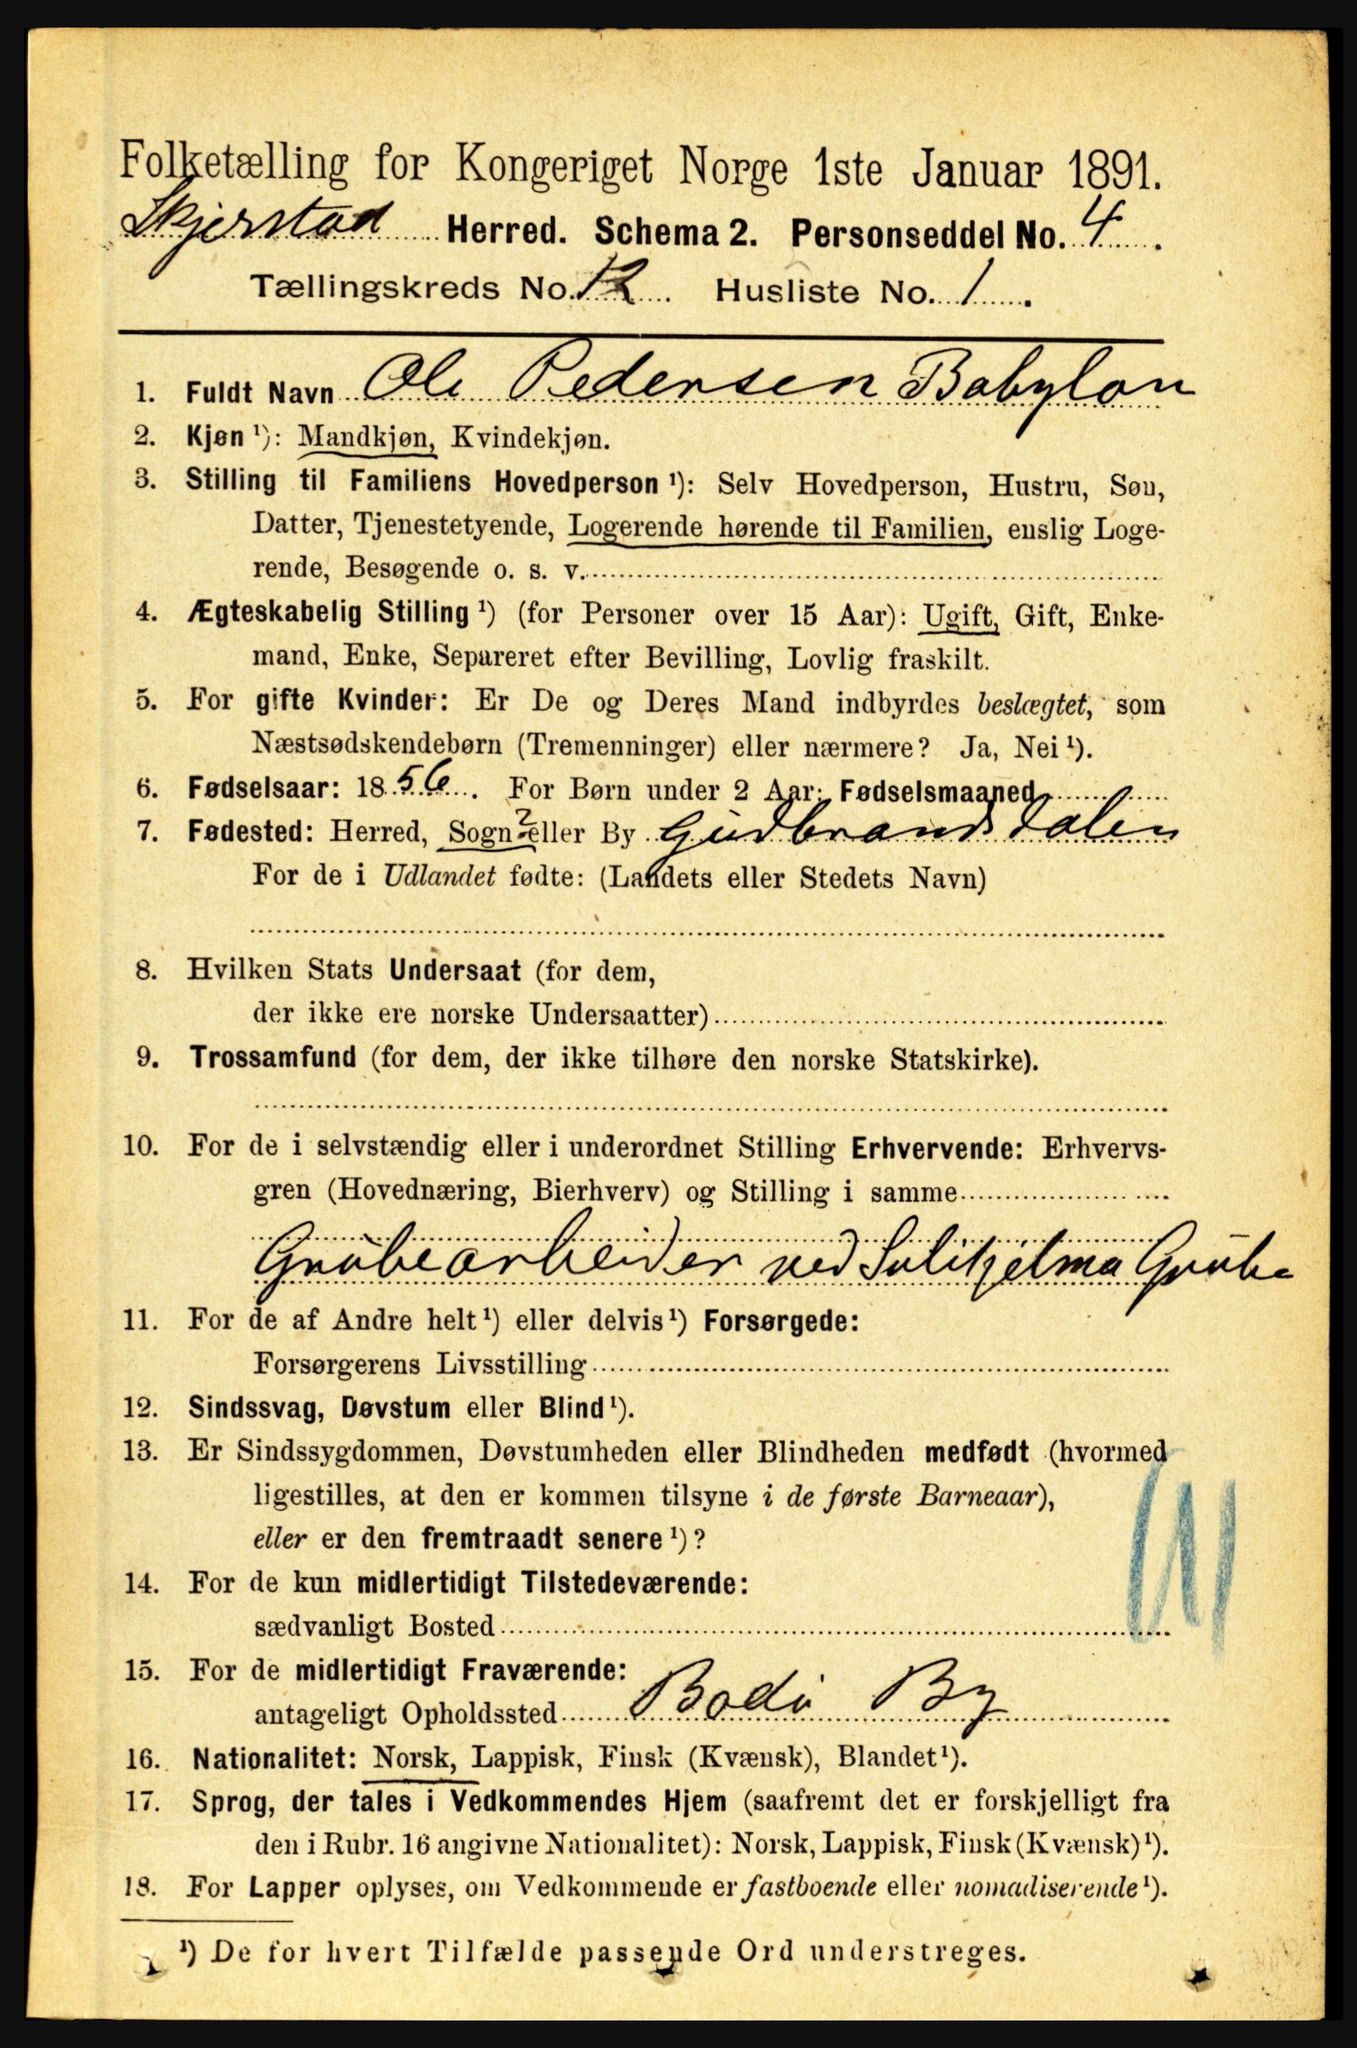 Folketælling for Kongeriget Norge 1ste Januar 1891.
Skjerstad Herred. Schema 2. Personseddel No. 4.
Tællingskreds No. 12. Husliste No. 1.
1. Fuldt Navn Ole Pedersen Babylon
2. Kjøn ¹): Mandkjøn, Kvindekjøn.
3. Stilling til Familiens Hovedperson ¹): Selv Hovedperson, Hustru, Søn,
Datter, Tjenestetyende, Logerende hørende til Familien, enslig Loge-
rende, Besøgende o. s. v.
4. Ægteskabelig Stilling ¹) (for Personer over 15 Aar): Ugift, Gift, Enke-
mand, Enke, Separeret efter Bevilling, Lovlig fraskilt.
5. For gifte Kvinder: Er De og Deres Mand indbyrdes beslægtet, som
Næstsødskendebørn (Tremenninger) eller nærmere? Ja, Nei ¹).
6. Fødselsaar: 1856. For Børn under 2 Aar: Fødselsmaaned
7. Fødested: Herred, Sogn? eller By Gudbrandsdalen
For de i Udlandet fødte: (Landets eller Stedets Navn)
8. Hvilken Stats Undersaat (for dem,
der ikke ere norske Undersaatter)
9. Trossamfund (for dem, der ikke tilhøre den norske Statskirke).
10. For de i selvstændig eller i underordnet Stilling Erhvervende: Erhvervs-
gren (Hovednæring, Bierhverv) og Stilling i samme
Grubearbeider ved Sulitjelma Grube
11. For de af Andre helt ¹) eller delvis ¹) Forsørgede:
Forsørgerens Livsstilling
12. Sindssvag, Døvstum eller Blind ¹).
13. Er Sindssygdommen, Døvstumheden eller Blindheden medfødt (hvormed
ligestilles, at den er kommen tilsyne i de første Barneaar),
eller er den fremtraadt senere ¹)?
14. For de kun midlertidigt Tilstedeværende:
sædvanligt Bosted
15. For de midlertidigt Fraværende:
antageligt Opholdssted Bodø By
16. Nationalitet: Norsk, Lappisk, Finsk (Kvænsk), Blandet ¹).
17. Sprog, der tales i Vedkommendes Hjem (saafremt det er forskjelligt fra
den i Rubr. 16 angivne Nationalitet): Norsk, Lappisk, Finsk (Kvænsk) ¹).
18. For Lapper oplyses, om Vedkommende er fastboende eller nomadiserende ¹).
¹) De for hvert Tilfælde passende Ord understreges.